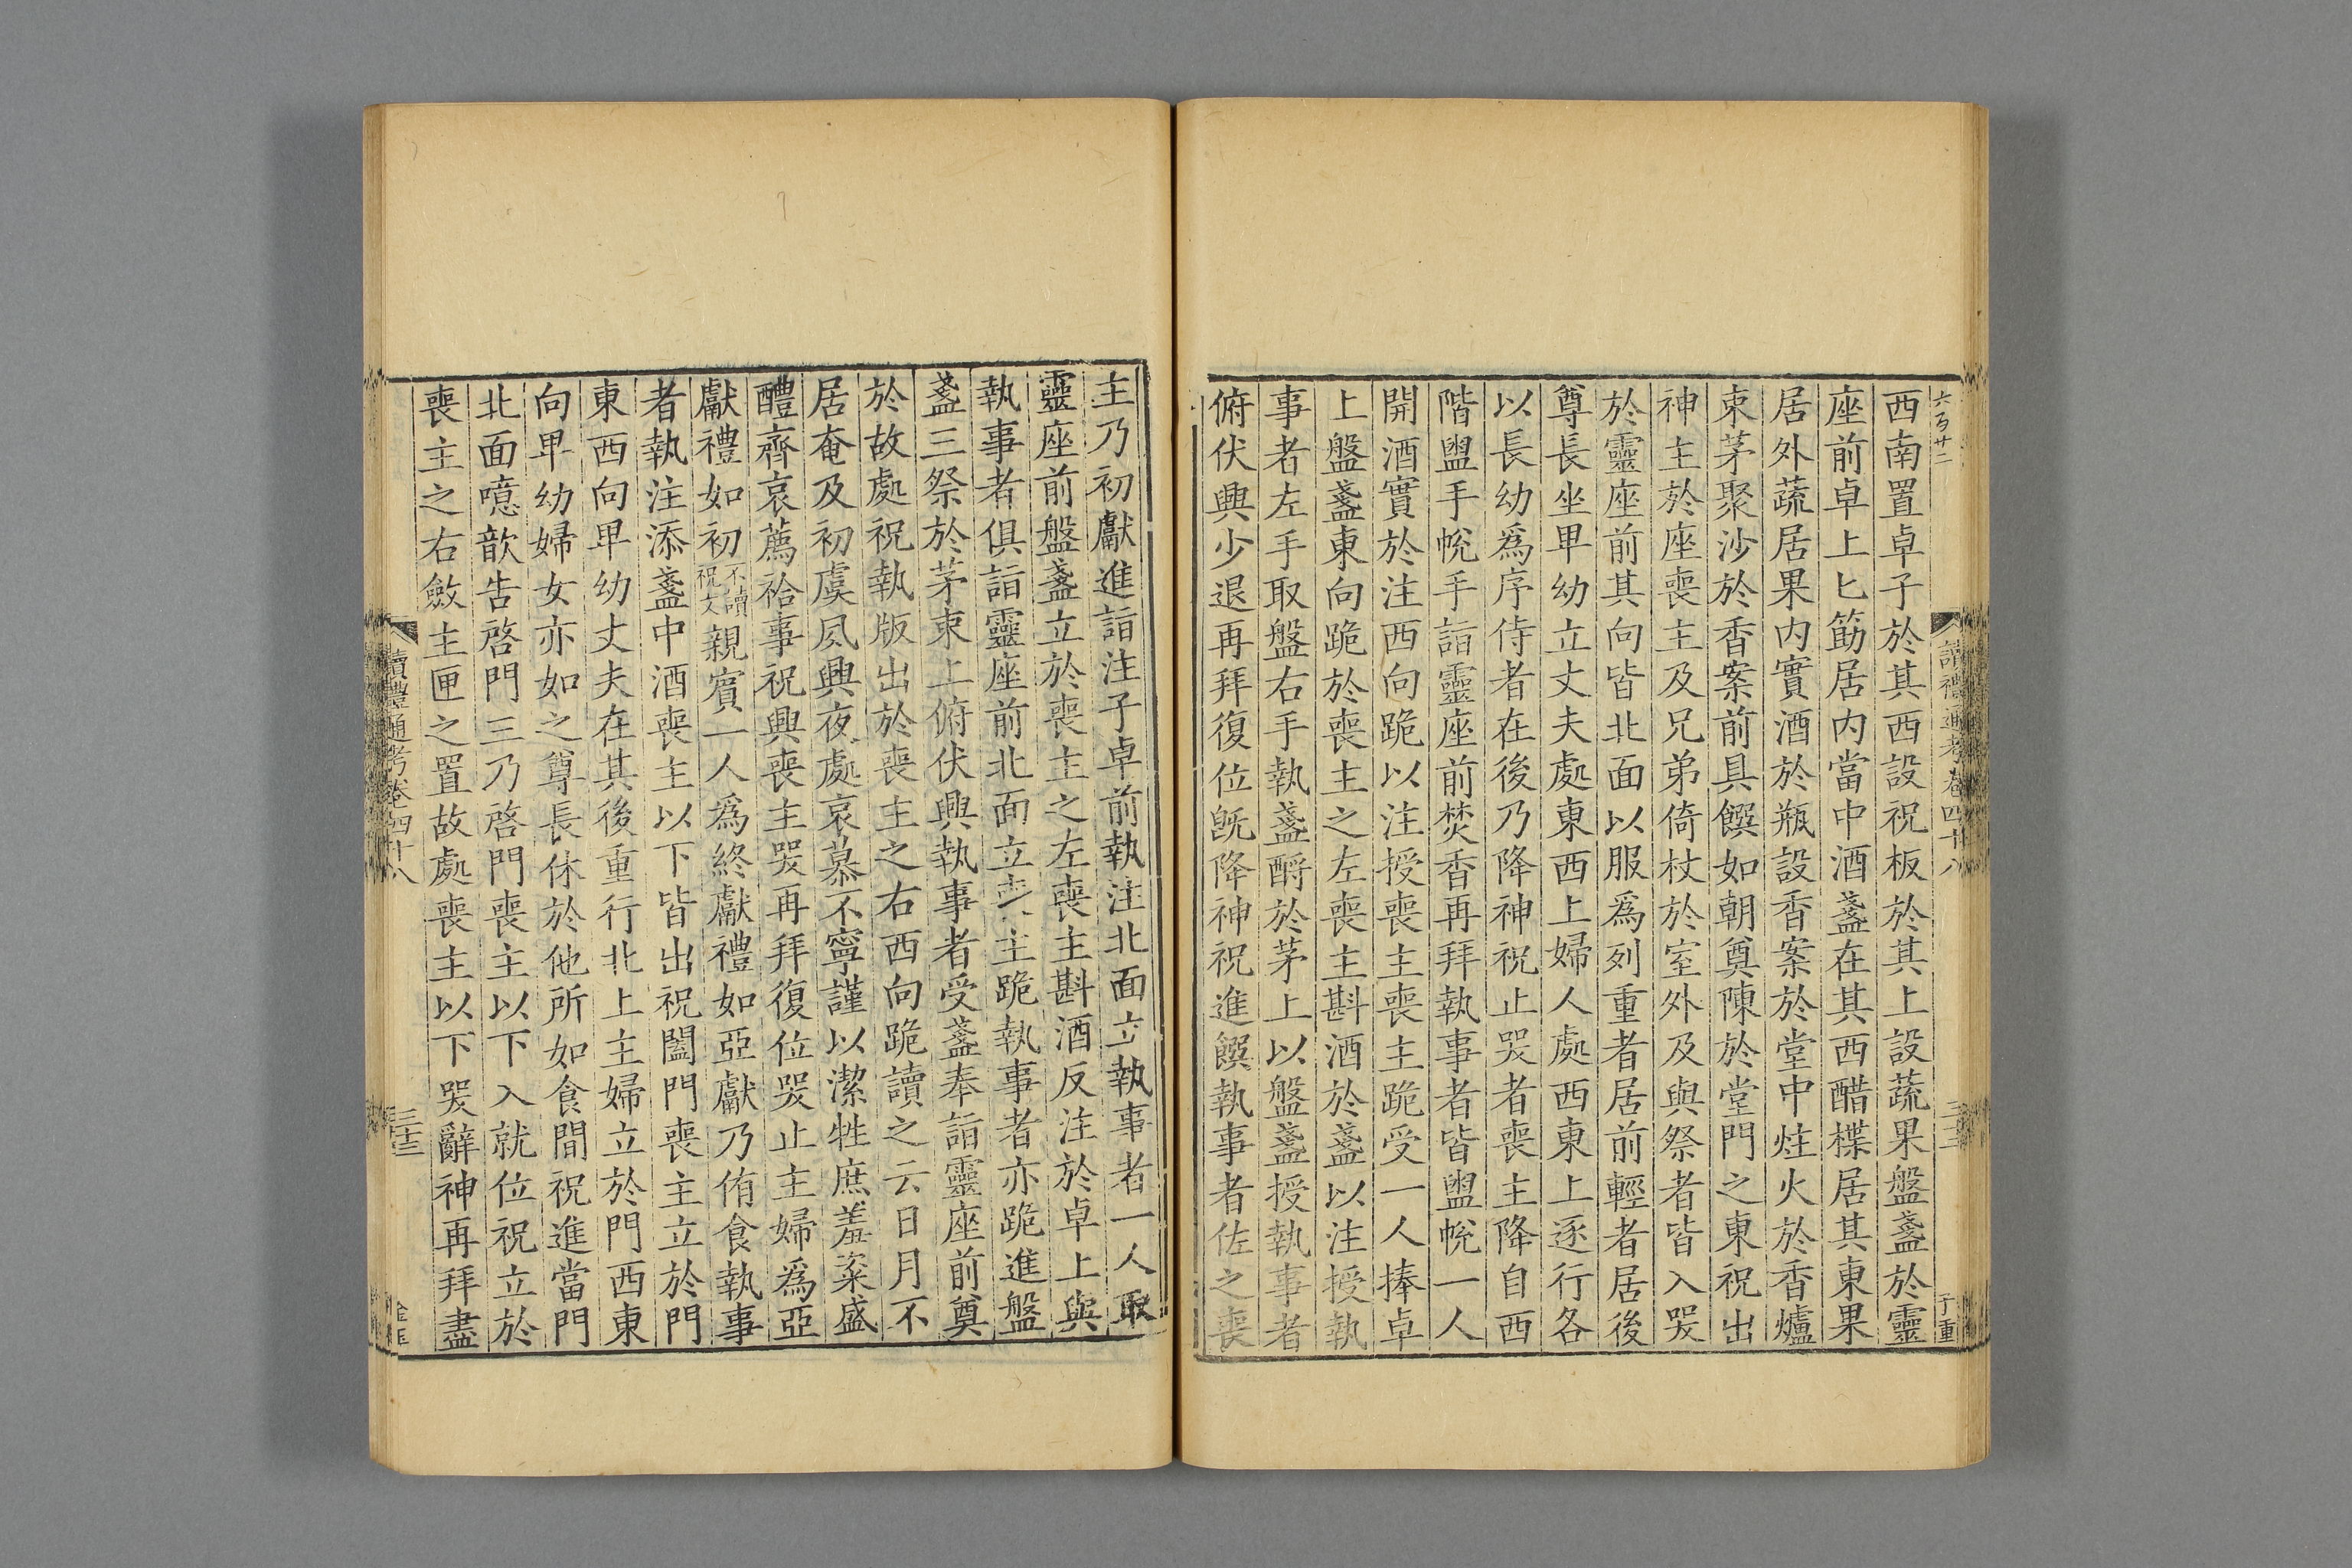 六百廿二
西南置卓子於其西設祝板於其上設蔬果盤盞於靈
座前卓上匕筯居内當中酒盞在其西醋楪居其東果
居外蔬居果内實酒於瓶設香案於堂中炷火於香爐
束茅聚沙於香案前具饌如朝奠陳於堂門之東祝出
神主於座喪主及兄弟倚杖於室外及與祭者皆入哭
於靈座前其向皆北面以服爲列重者居前輕者居後
尊長坐卑幼立丈夫處東西上婦人處西東上逐行各
以長幼爲序侍者在後乃降神祝止哭者喪主降自西
階盥手帨手詣靈座前焚香再拜執事者皆盥帨一人
開酒實於注西向跪以注授喪主喪主跪受一人捧卓
上盤盞東向跪於喪主之左喪主斟酒於盞以注授執
事者左手取盤右手執盞酹於茅上以盤盞授執事者
俯伏興少退再拜復位旣降神祝進饌執事者佐之喪
讀禮通考卷四十八
子重
主乃初獻進詣注子卓前執注北面立執事者一人取
靈座前盤盞立於喪主之左喪主斟酒反注於卓上與
執事者俱詣靈座前北面立喪主跪執事者亦跪進盤
盞三祭於茅束上俯伏興執事者受盞奉詣靈座前奠
於故處祝執版出於喪主之右西向跪讀之云日月不
居奄及初虞夙興夜處哀慕不寧謹以潔牲庶羞粢盛
醴齊哀薦祫事祝興喪主哭再拜復位哭止主婦爲亞
獻禮如初不讀祝文親賓一人爲終獻禮如亞獻乃侑食執事
者執注添盞中酒喪主以下皆出祝闔門喪主立於門
東西向卑幼丈夫在其後重行北上主婦立於門西東
向卑幼婦女亦如之尊長休於他所如食間祝進當門
北面噫歆告啓門三乃啓門喪主以下入就位祝立於
喪主之右斂主匣之置故處喪主以下哭辭神再拜盡
讀禮通考卷四十八
三十三